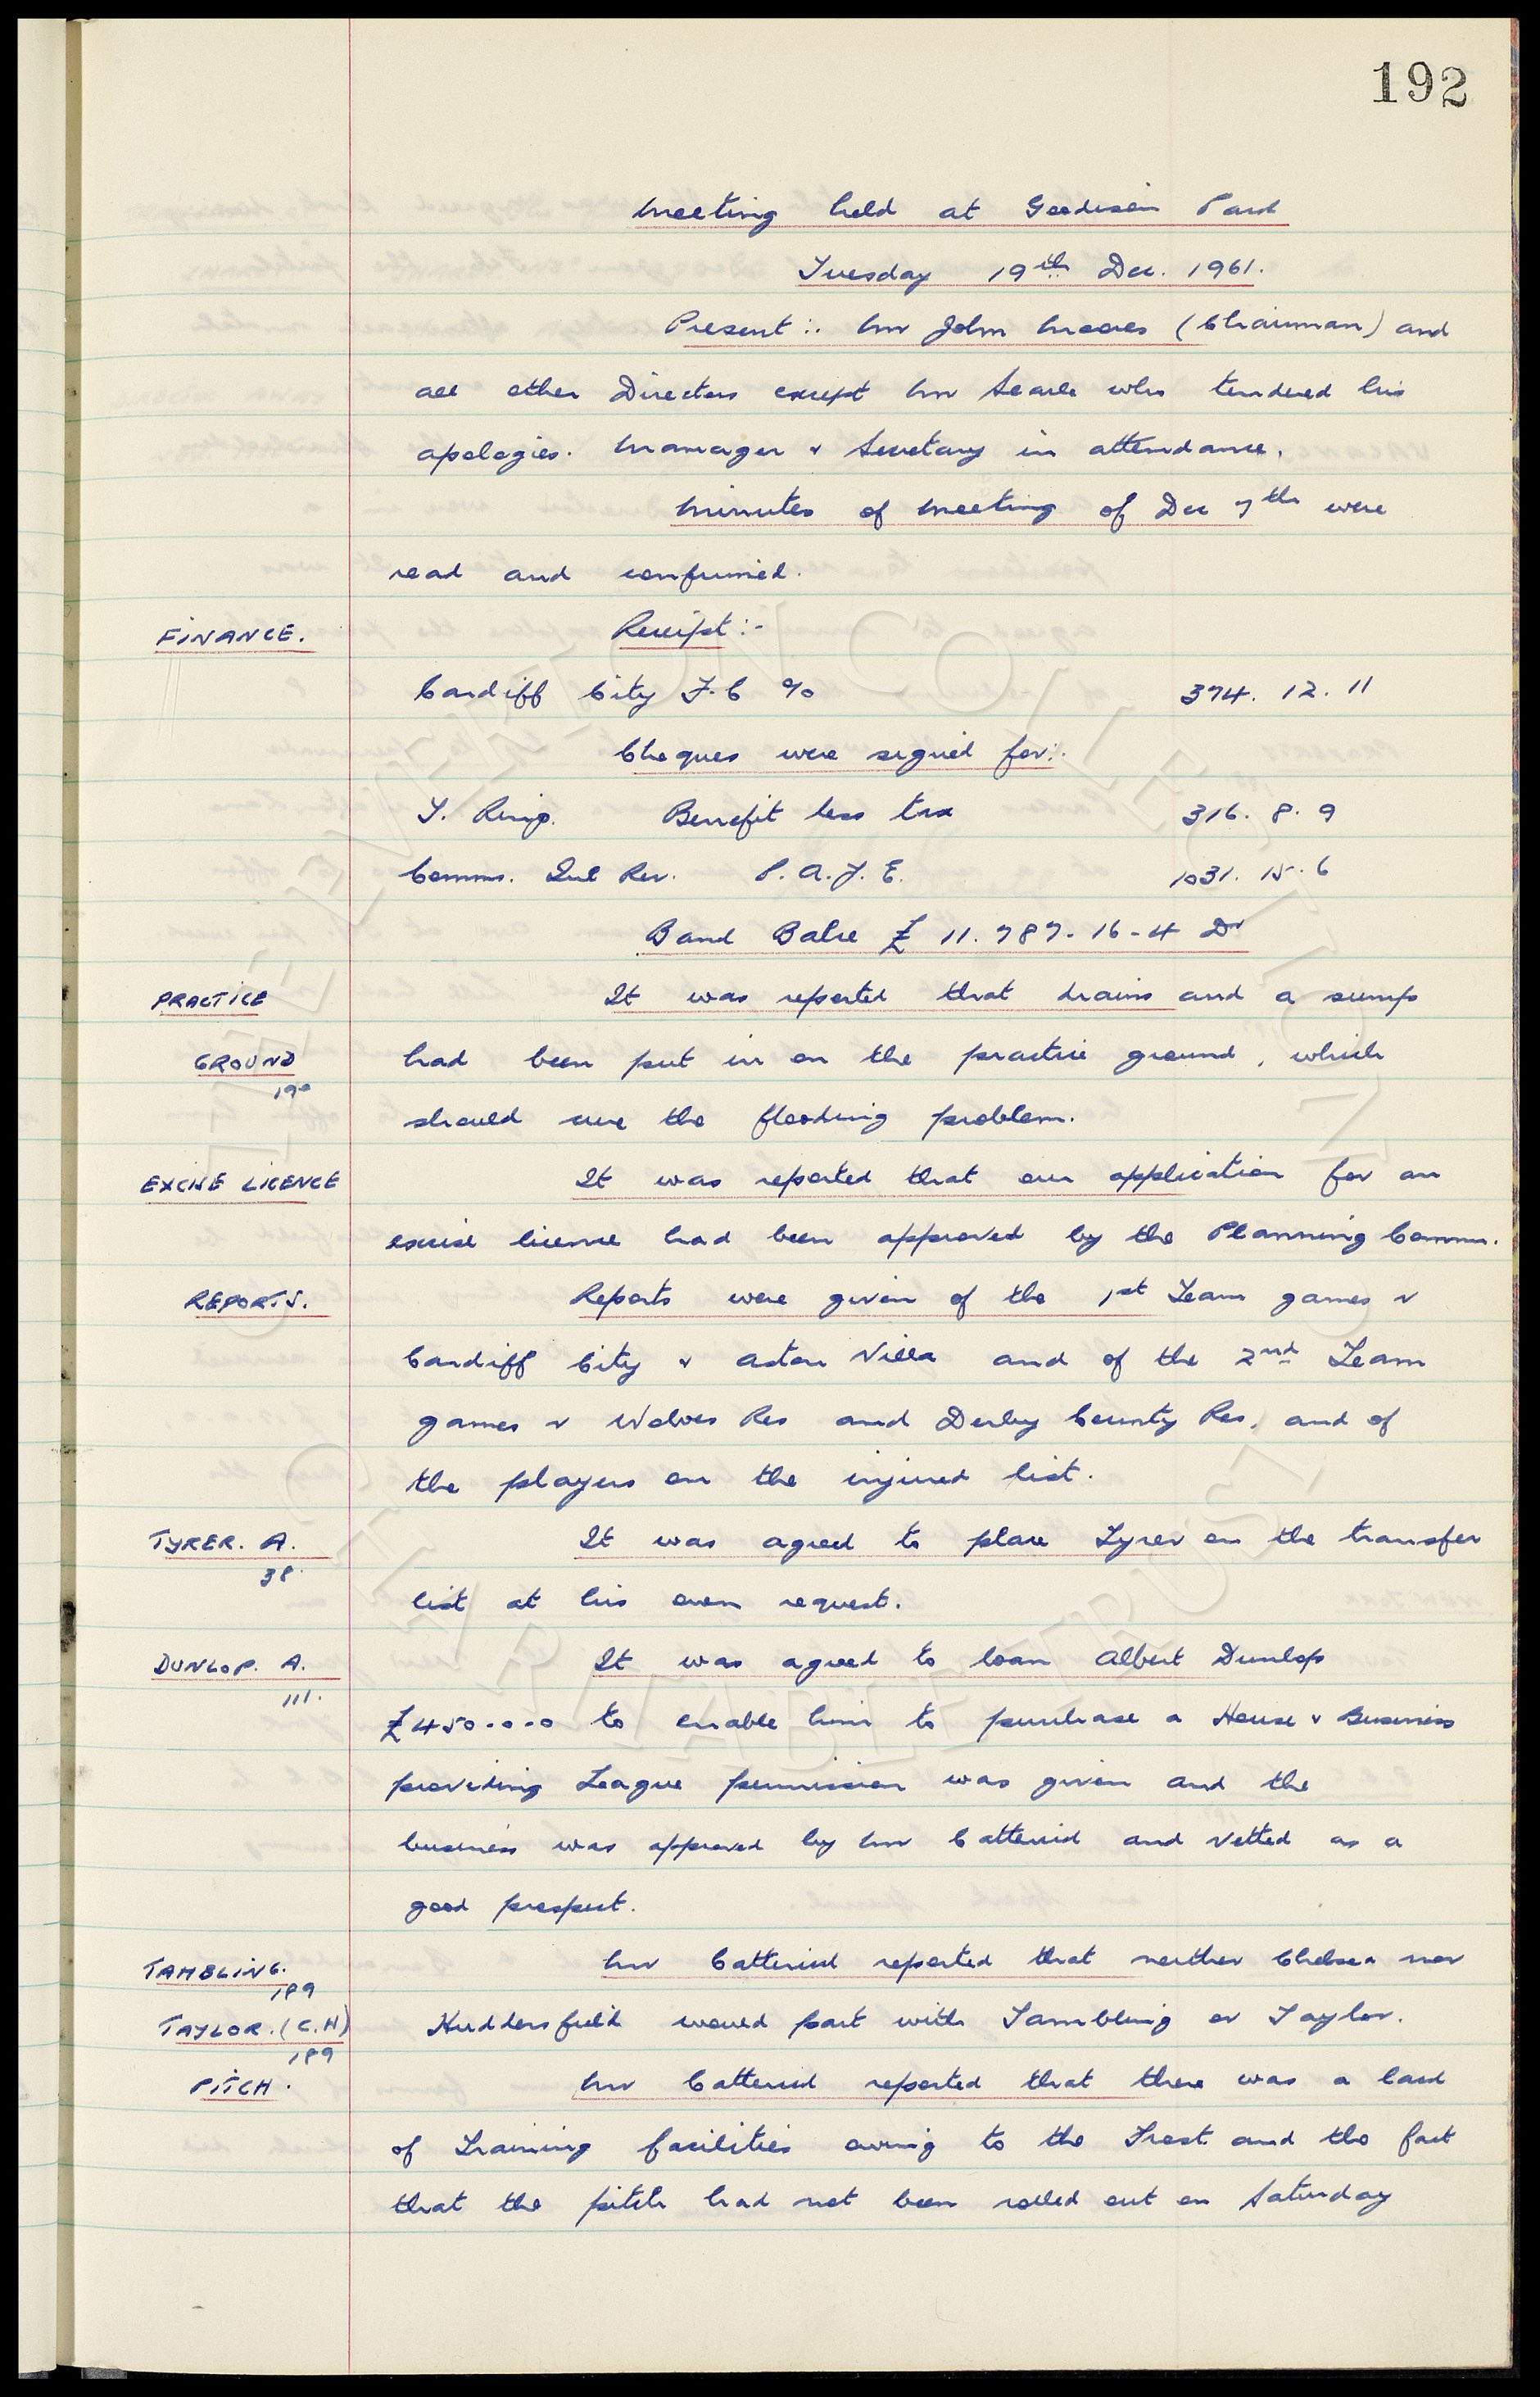 192
Meeting held at Goodison Park
Tuesday 19th Dec. 1961.
Present :. Mr John Moores (Chairman) and
all other Directors except Mr Searle who tendered his
apologies. Manager & Secretary in attendance.
Minutes of Meeting of Dec 7th were
read and confirmed.
FINANCE. Receipt :-
Cardiff City F.C % 374. 12. 11
Cheques were signed for :.
T. Ring. Benefit less tax 316. 8. 9
Comms. Inl Rev. P.A.Y.E. 1031. 15. 6
Bank Balce £ 11.787-16-4 Dr
PRACTICE It was reported that drains and a sump
GROUND had been put in on the practice ground, which
190
should cure the flooding problem.
EXCISE LICENCE It was reported that our application for an
excise licence had been approved by the Planning Comm.
REPORTS. Reports were given of the 1st Team games v
Cardiff City & Aston Villa and of the 2nd Team
games v Wolves Res and Derby County Res, and of
the players on the injured list.
TYRER. A. It was agreed to place Tyrer on the transfer
38.
list at his own request.
DUNLOP. A. It was agreed to loan Albert Dunlop
111.
£450-0-0 to enable him to purchase a House & Business
providing League permission was given and the
business was approved by Mr Catterick and vetted as a
good prospect.
TAMBLING. Mr Catterick reported that neither Chelsea nor
189
TAYLOR. (C.H) Huddersfield would part with Tambling or Taylor.
189
PITCH. Mr Catterick reported that there was a lack
of Training facilities owing to the Frost and the fact
that the pitch had not been rolled out on Saturday